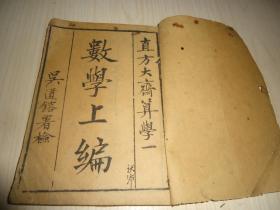 直方大齋算學一
數學上編
吳道鎔署檢